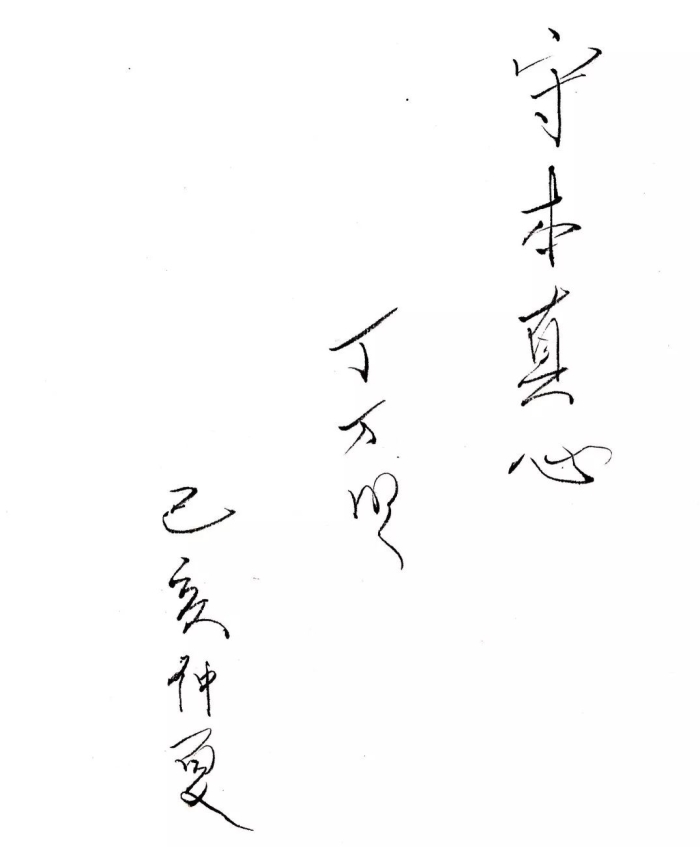 守本真心
丁万明
己亥仲夏